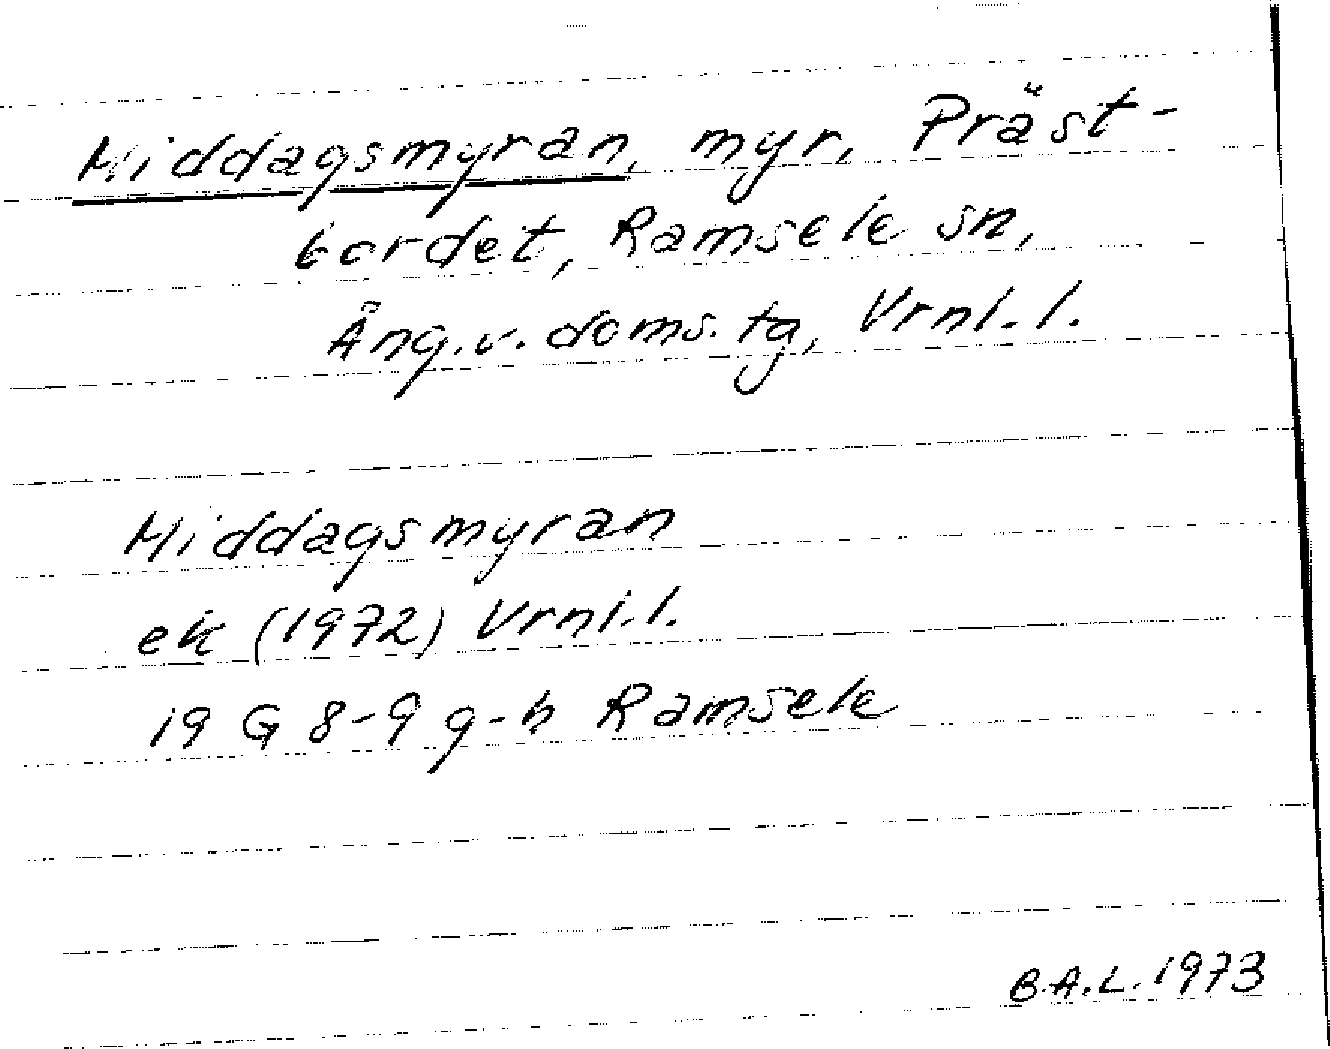 Middagsmyran, myr, Präst-
bordet, Ramsele sn,
Ång.v. doms. tg, Vrnl. l.
Middagsmyran
ek (1972) Vrnl. l.
19 G 8-9 g-h Ramsele
B.A.L. 1973